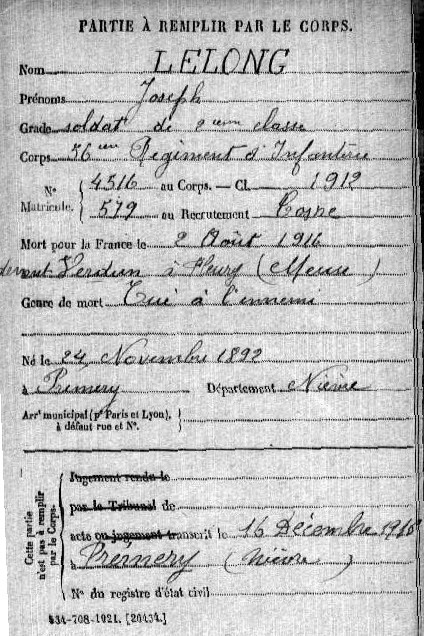 PARTIE À REMPLIR PAR LE CORPS.
Nom LELONG
Prénoms Joseph
Grade soldat de 2eme classe
Corps 56eme Régiment d'Infanterie
N° Matricule. 4516 au Corps. — Cl. 1912
579 au Recrutement Cosne
Mort pour la France le 2 Août 1916
devant Verdun à Fleury (Meuse)
Genre de mort Tué à l'ennemi
Né le 24 Novembre 1892
à Premery Département Nièvre
Arrt municipal (pr Paris et Lyon),
à défaut rue et N°.
Cette partie n'est pas à remplir par le Corps.
Jugement rendu le
par le Tribunal de
acte ou jugement transcrit le 16 Décembre 1916
à Premery (Nièvre)
N° du registre d'état civil
534-708-1921. [20434.]